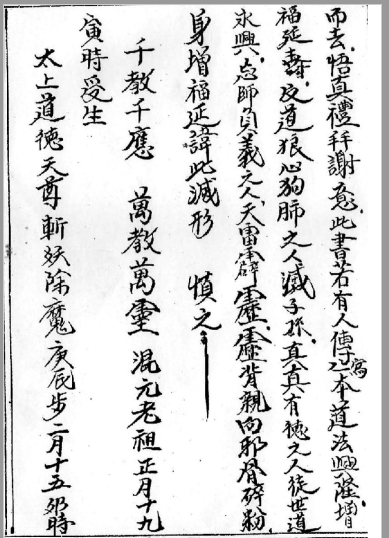 而去悟真禮拜謝意此書若有人傳寫本道法興隆增
福延壽反道狼心狗肺之人滅子孫直真有德之人後世道
永興忘師負義之人天雷霹靂背親向邪骨碎粉
身增福延諱此滅形 慎之
千教千應 萬教萬靈 混元老祖正月十九
寅時受生
太上道德天尊斬妖除魔庚辰步二月十五卯時